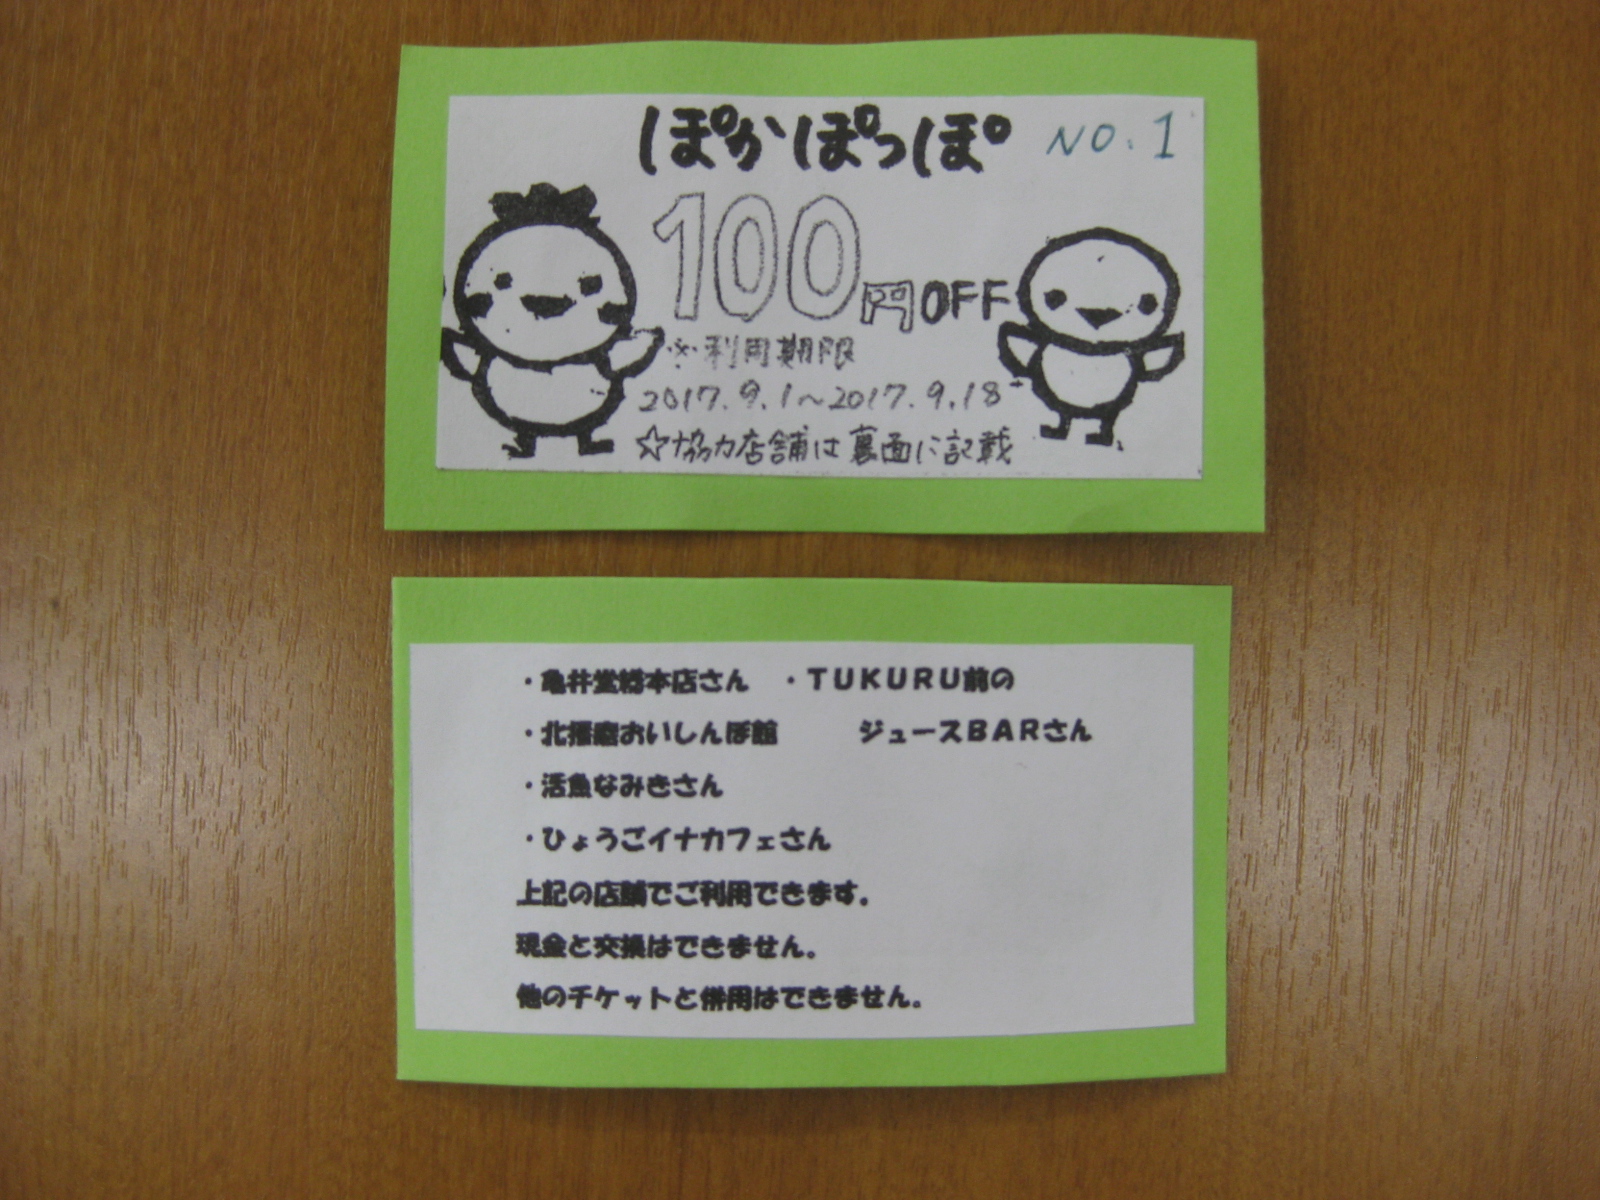 ぽかぽっぽ NO.1
100円OFF
※利用期限
2017.9.1～2017.9.18
☆協力店舗は裏面に記載
・亀井堂総本店さん ・TUKURU前の
・北播磨おいしんぼ館 ジュースBARさん
・活魚なみきさん
・ひょうごイナカフェさん
上記の店舗でご利用できます。
現金と交換はできません。
他のチケットと併用はできません。